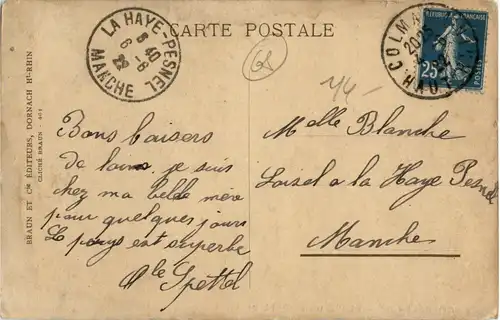 CARTE POSTALE
LA HAYE-PESNEL
6 40
6 -8
22
MANCHE
COLMAR
REPUBLIQUE FRANÇAISE
25
POSTES
44-
BRAUN ET Cie ÉDITEURS, DORNACH Ht-RHIN
CLICHÉ BRAUN
Bons baisers
de loin. je suis
chez ma belle mère
pour quelques jours
Le pays est superbe
Spettel
Melle Blanche
Loisel a la Haye Pesnel
Manche